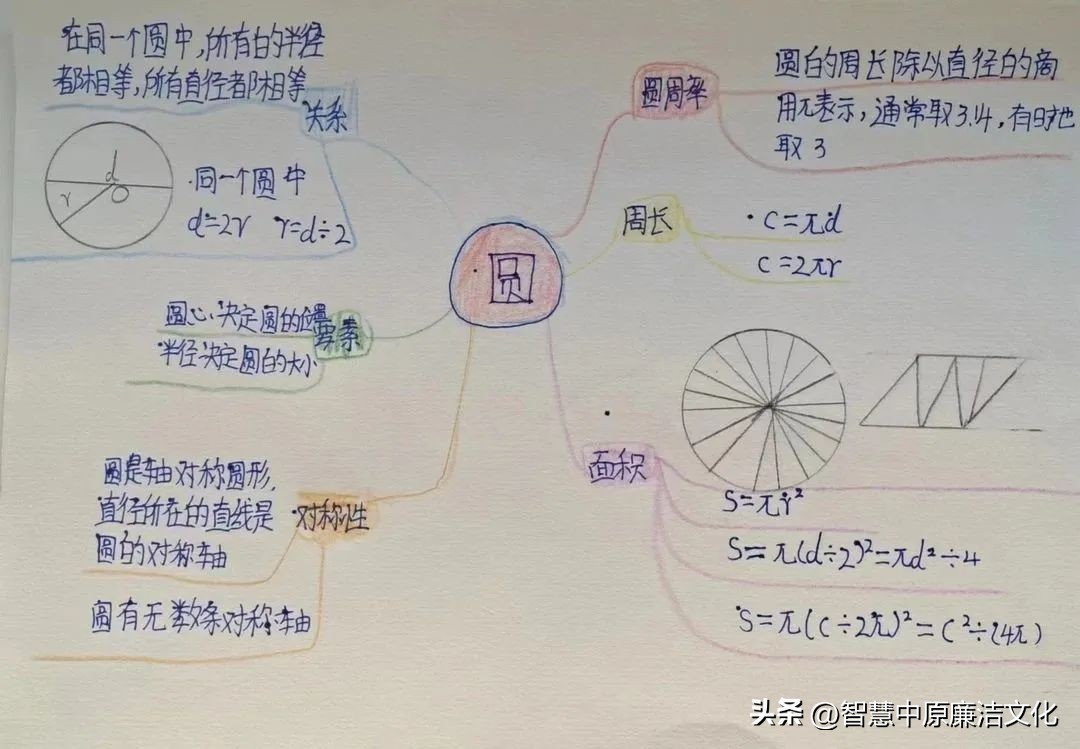 在同一个圆中,所有的半径
都相等,所有直径都相等
关系
d
r
O
·同一个圆中
d=2r r=d÷2
圆心决定圆的位置
要素
半径决定圆的大小
圆是轴对称图形,
直径所在的直线是
圆的对称轴
对称性
圆有无数条对称轴
圆
圆周率
圆的周长除以直径的商
用π表示,通常取3.4,有时也
取3
周长
C=πd
C=2πr
面积
S=πr²
S=π(d÷2)²=πd²÷4
S=π(C÷2π)²=C²÷(4π)
头条 @智慧中原廉洁文化